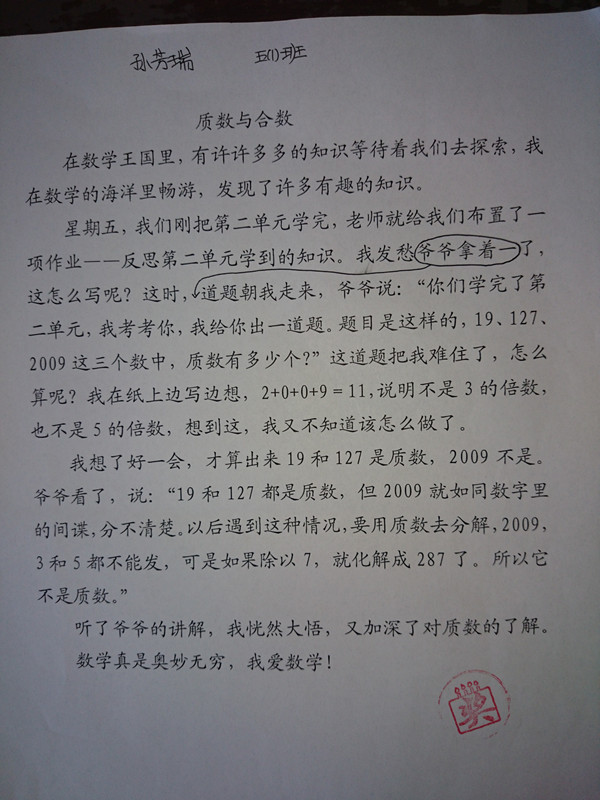 孙芳瑞 五(1)班
质数与合数
在数学王国里，有许许多多的知识等待着我们去探索，我
在数学的海洋里畅游，发现了许多有趣的知识。
星期五，我们刚把第二单元学完，老师就给我们布置了一
项作业——反思第二单元学到的知识。我发愁爷爷拿着一了，
这怎么写呢？这时，道题朝我走来，爷爷说：“你们学完了第
二单元，我考考你，我给你出一道题。题目是这样的，19、127、
2009 这三个数中，质数有多少个？”这道题把我难住了，怎么
算呢？我在纸上边写边想，2+0+0+9＝11，说明不是 3 的倍数，
也不是 5 的倍数，想到这，我又不知道该怎么做了。
我想了好一会，才算出来 19 和 127 是质数，2009 不是。
爷爷看了，说：“19 和 127 都是质数，但 2009 就如同数字里
的间谍，分不清楚。以后遇到这种情况，要用质数去分解，2009，
3 和 5 都不能发，可是如果除以 7，就化解成 287 了。所以它
不是质数。”
听了爷爷的讲解，我恍然大悟，又加深了对质数的了解。
数学真是奥妙无穷，我爱数学！
奖